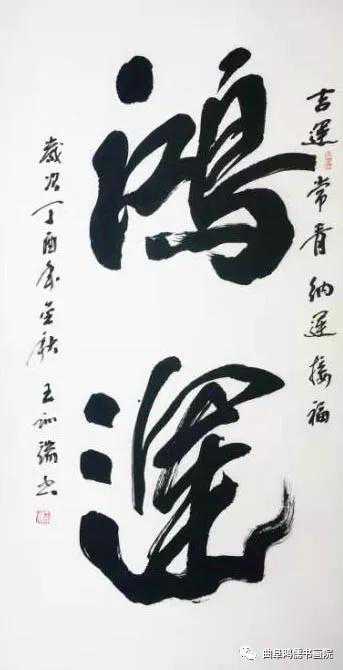 吉運常青 納運接福
鸿運
歲次丁酉年金秋 王训瑞书
曲阜鸿儒书画院